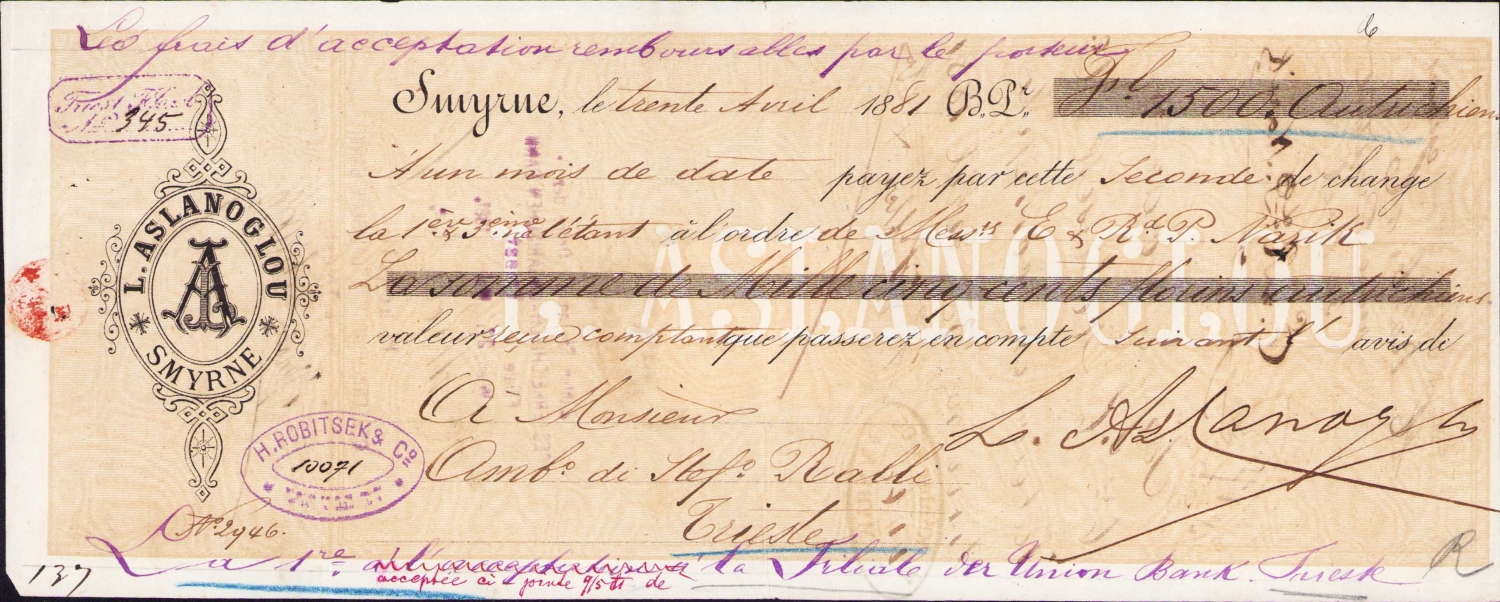 Les frais d'acceptation remboursables par le porteur
6
Triest
No 345
Smyrne, le trente Avril 1881 B.P.r Fl 1500. Autrichiens
A un mois de date payez par cette Seconde de change
la 1ère & 3ème n'étant à l'ordre de Mess.rs E & R. P. Nazik
La somme de Mille cinq cents florins autrichiens
valeur reçue comptant que passerez en compte suivant l' avis de
L. ASLANOGLOU
L. ASLANOGLOU
A
SMYRNE
A Monsieur
L. Aslanoglou
Amb.o di Stef.o Ralli
Trieste
H. ROBITSEK & Co
10071
No. 2946.
La 1re à la Filiale der Union Bank. Trieste
acceptée ci jointe 9/5 de
137
R